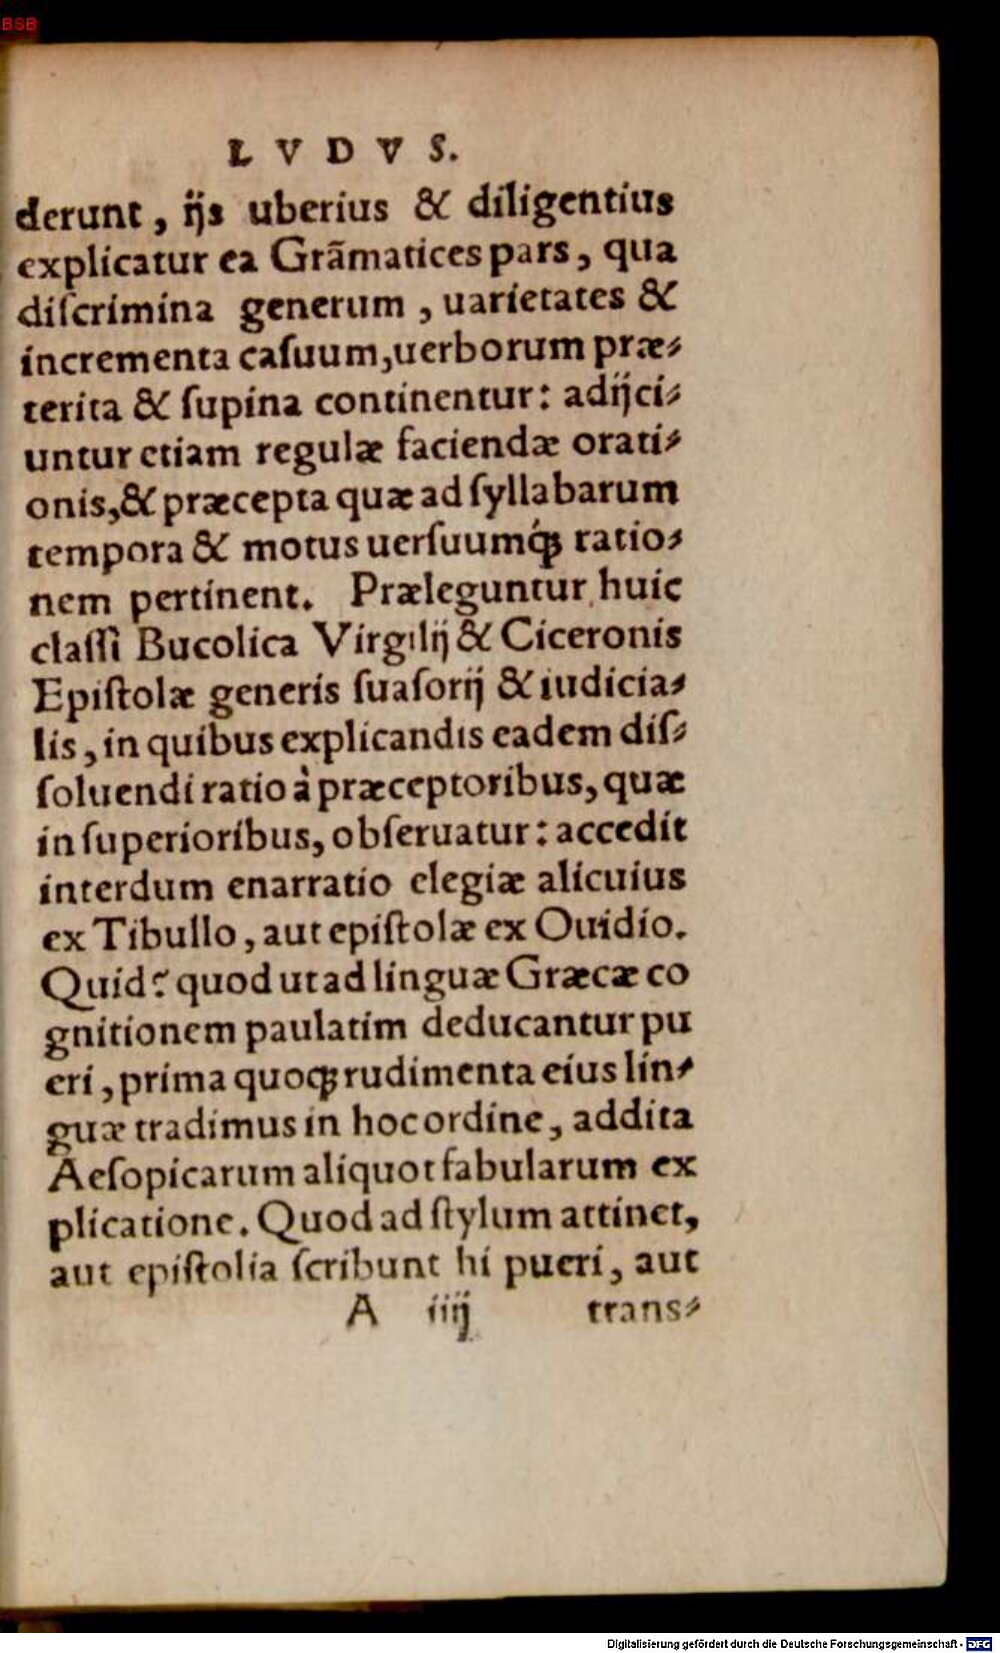 BSB
LVDVS.
derunt, ijs uberius & diligentius
explicatur ea Grãmatices pars, qua
diſcrimina generum, uarietates &
incrementa caſuum, uerborum præ⸗
terita & ſupina continentur: adijci⸗
untur etiam regulæ faciendæ orati⸗
onis, & præcepta quæ ad ſyllabarum
tempora & motus uerſuumq́ꝫ ratio⸗
nem pertinent. Præleguntur huic
claſſi Bucolica Virgilij & Ciceronis
Epiſtolæ generis ſuaſorij & iudicia⸗
lis, in quibus explicandis eadem diſ⸗
ſoluendi ratio à præceptoribus, quæ
in ſuperioribus, obſeruatur: accedit
interdum enarratio elegiæ alicuius
ex Tibullo, aut epiſtolæ ex Ouidio.
Quid? quod ut ad linguæ Græcæ co
gnitionem paulatim deducantur pu
eri, prima quoqꝫ rudimenta eius lin⸗
guæ tradimus in hoc ordine, addita
Aeſopicarum aliquot fabularum ex
plicatione. Quod ad ſtylum attinet,
aut epiſtolia ſcribunt hi pueri, aut
A iiij trans⸗
Digitalisierung gefördert durch die Deutsche Forschungsgemeinschaft - DFG